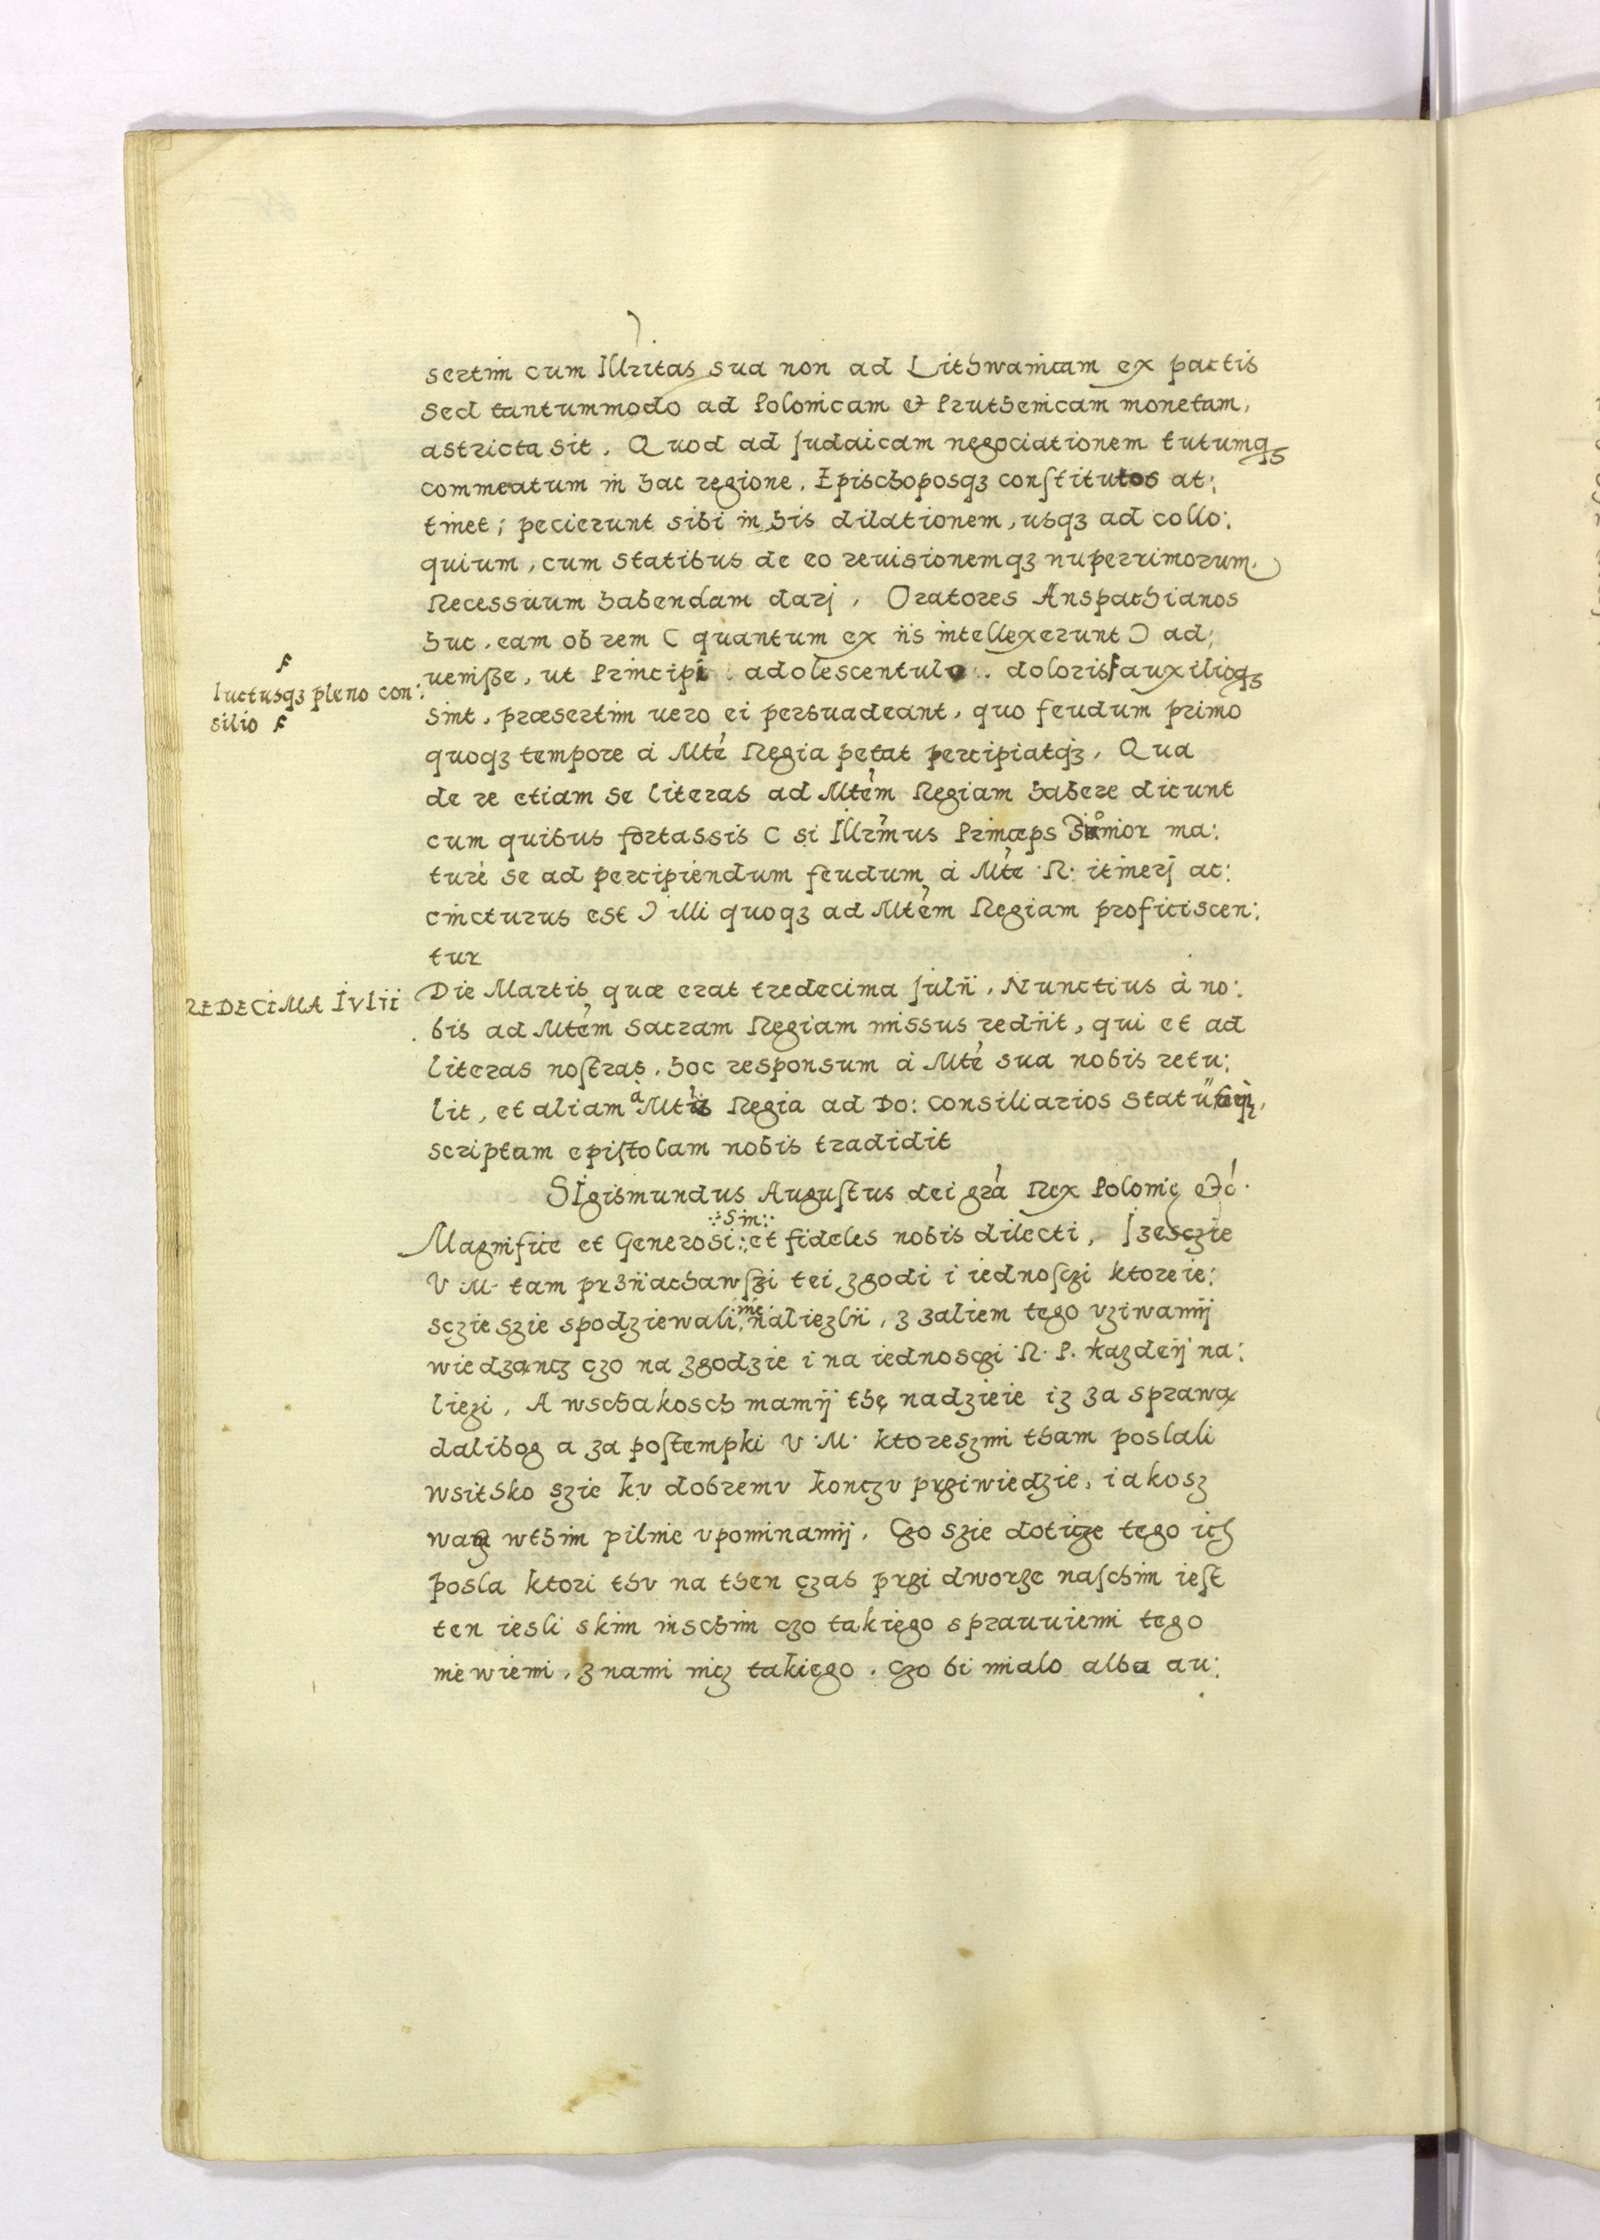 sertim cum Illritas sua non ad Lithwanicam ex pactis
sed tantummodo ad Polonicam et Pruthenicam monetam,
astricta sit. Quod ad Judaicam negociationem tutumqʒ
commeatum in hac regione, Epischoposqʒ constitutos at:
tinet; pecierunt sibi in his dilationem, usqʒ ad collo:
quium, cum statibus de eo reuisionemqʒ nuperrimorum
Recessuum habendam darj, Oratores Anspachianos
huc, eam ob rem ( quantum ex iis intellexerunt ) ad:
uenisse, ut Principi adolescentulo doloris F auxilioqʒ
F
luctusqʒ pleno con:
silio F
sint, præsertim uero ei persuadeant, quo feudum primo
quoqʒ tempore á Mte Regia petat percipiatqʒ, Qua
de re etiam se literas ad Mtem Regiam habere dicunt
cum quibus fortassis ( si Illrmus Princeps Junior ma:
turé se ad percipiendum feudum á Mte R: itinerj ac:
cincturus est ) illi quoqʒ ad Mtem Regiam proficiscen:
tur
REDECIMA IVLII
Die Martis quæ erat tredecima Julii, Nunctius á no:
bis ad Mtem Sacram Regiam missus rediit, qui et ad
literas nostras, hoc responsum á Mte sua nobis retu:
lit, et aliam à Mte Regia ad Do: Consiliarios Statu
scriptam epistolam nobis tradidit
SIgismundus Augustus dei gra Rex Polonię etc.
Magnifice et Generosi :Sin: et fideles nobis dilecti, Izesczie
V.M. tam prziiachawszi tei zgodi i iednosczi ktoreie:
sczie szie spodziewali, nie naliezlii, z zaliem tego vziwamij
wiedzancz czo na zgodzie i na iednosczi R.P. kazdeij na:
liezi, A wschakosch mamij thę nadzieie iz za sprawą
dalibog a za postempki V.M. ktoreszmi tham poslali
wsitsko szie kv dobremv konczv prziwiedzie, iakosz
wthim pilnie vpominamij. Czo szie doticze tego ich
posla ktori thv na then czas przi dworze naschim iest
ten iesli skim inschim czo takiego sprauuiemi tego
niewiemi, z nami nicz takiego, czo bi mialo albo au: